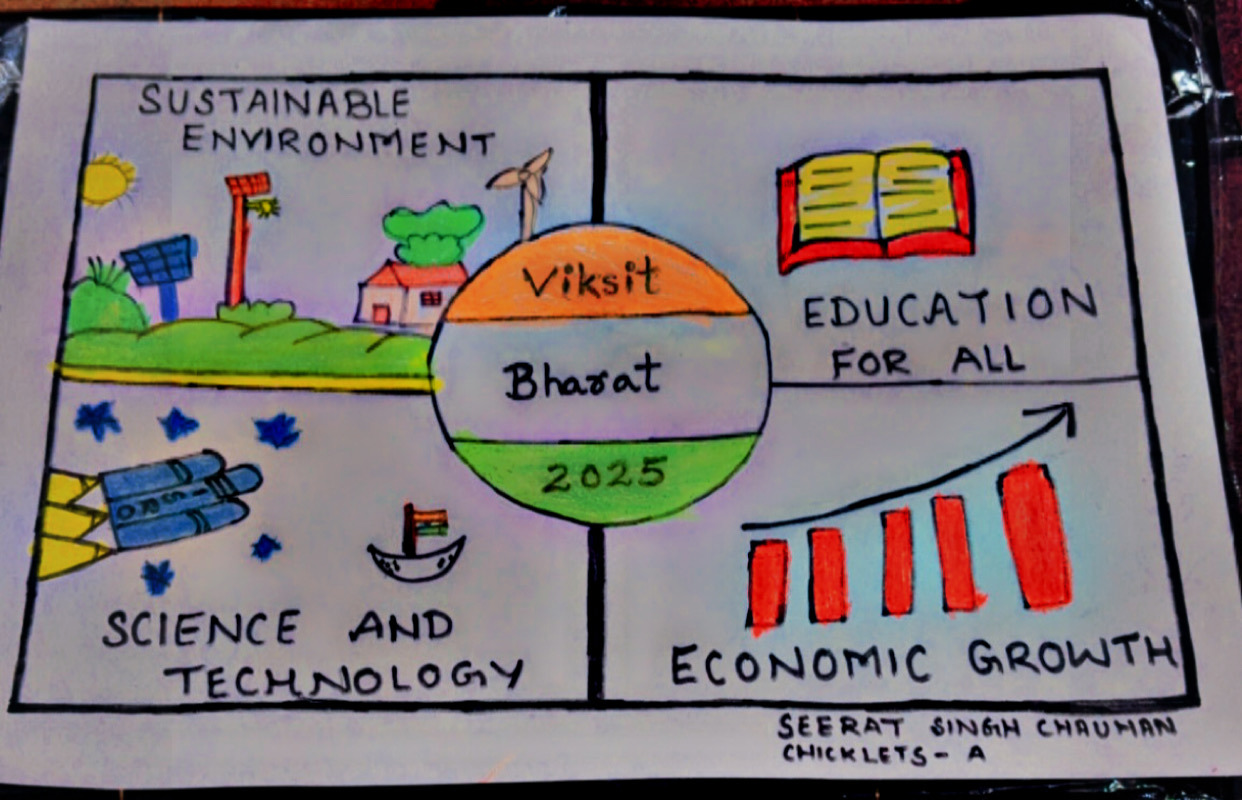 SUSTAINABLE
ENVIRONMENT
EDUCATION
FOR ALL
Viksit
Bharat
2025
SCIENCE AND
TECHNOLOGY
ECONOMIC GROWTH
SEERAT SINGH CHAUMAN
CHICKLETS - A